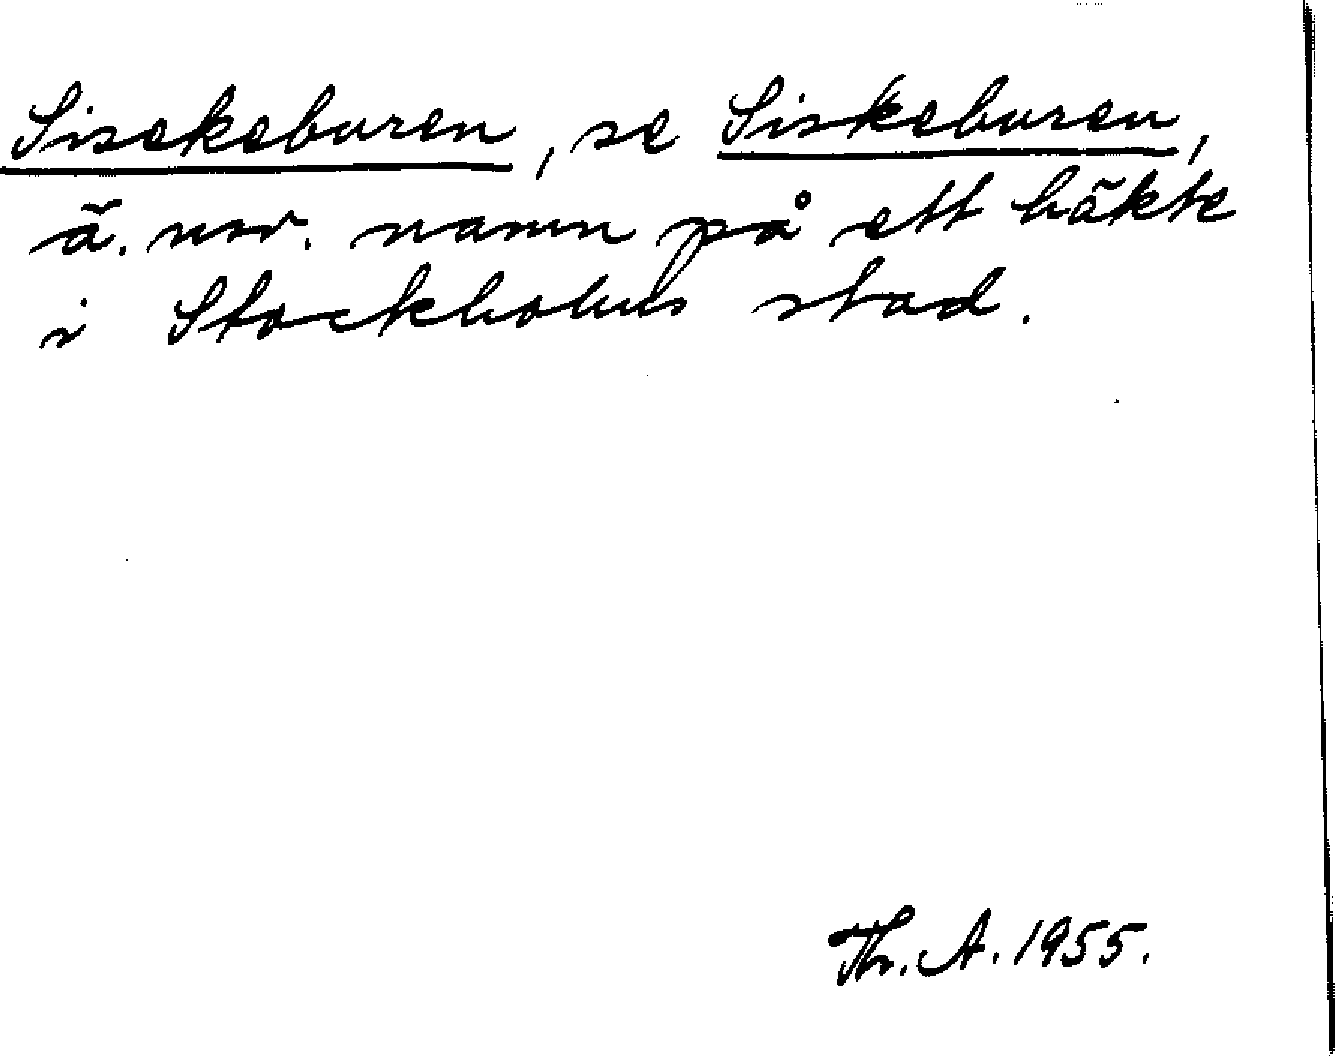 Sisekeburen, se Siskeburen,
ä. nsv. namn på ett häkte
i Stockholms stad.
Th. A. 1955.